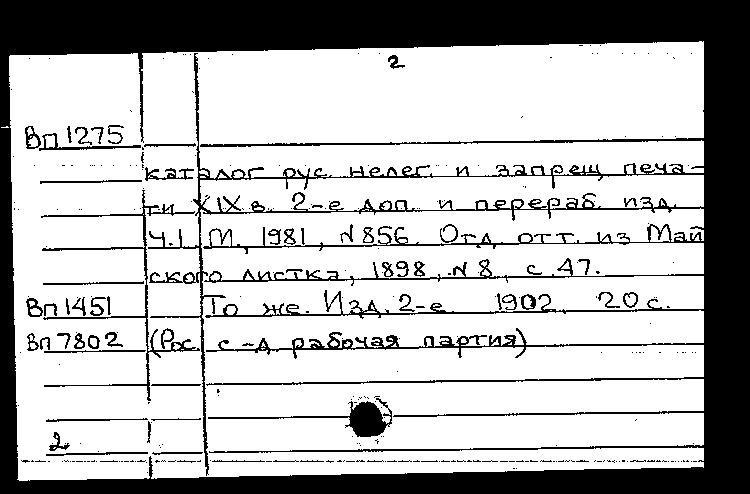 2
Вп 1275
каталог рус. нелег. и запрещ. печа-
ти XIX в. 2-е доп. и перераб. изд.
Ч.1. М., 1981, N 856. Отд. отт. из Май
ского листка, 1898, N 8, с. 47.
Вп 1451 То же. Изд. 2-е. 1902. 20 с.
Вп 7802 (Рос. с.-д. рабочая партия)
2